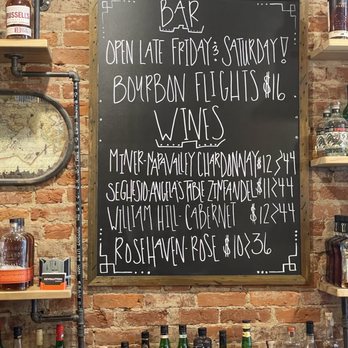 RUSSELL'S
BAR
OPEN LATE FRIDAY & SATURDAY!
BOURBON FLIGHTS $16
WINES
MINER-NAPA VALLEY CHARDONNAY $12>44
SEGHESIO ANGELAS TABLE ZINFANDEL $11>44
WILLIAM HILL-CABERNET $12>44
ROSEHAVEN-ROSE $10>36